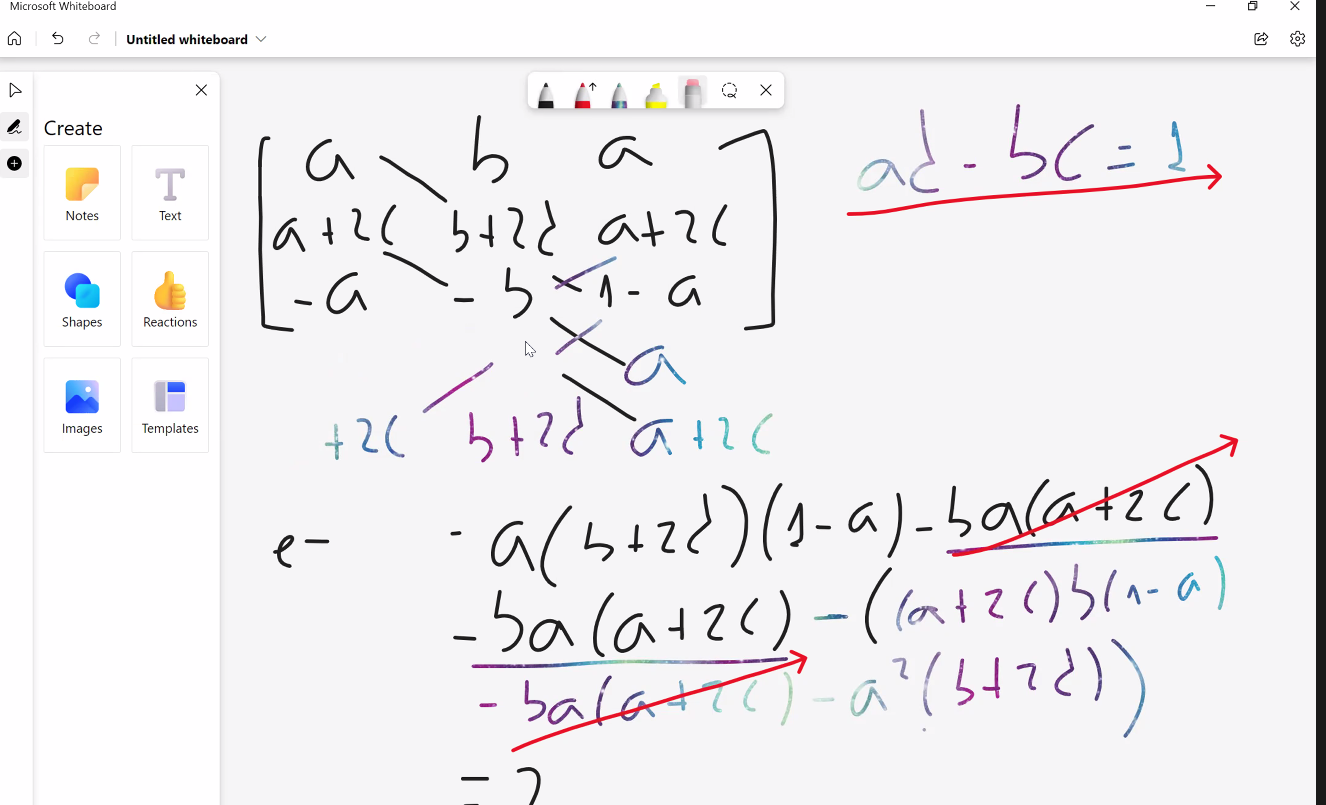 Microsoft Whiteboard
Untitled whiteboard
Create
Notes
Text
Shapes
Reactions
Images
Templates
a b a
a+2c b+2d a+2c
-a -b 1-a
ad - bc = 1
a
+2c b+2d a+2c
e-
- a(b+2d)(1-a) - ba(a+2c)
- ba(a+2c) - ((a+2c)b(1-a)
- ba(a+2c) - a²(b+2d))
=